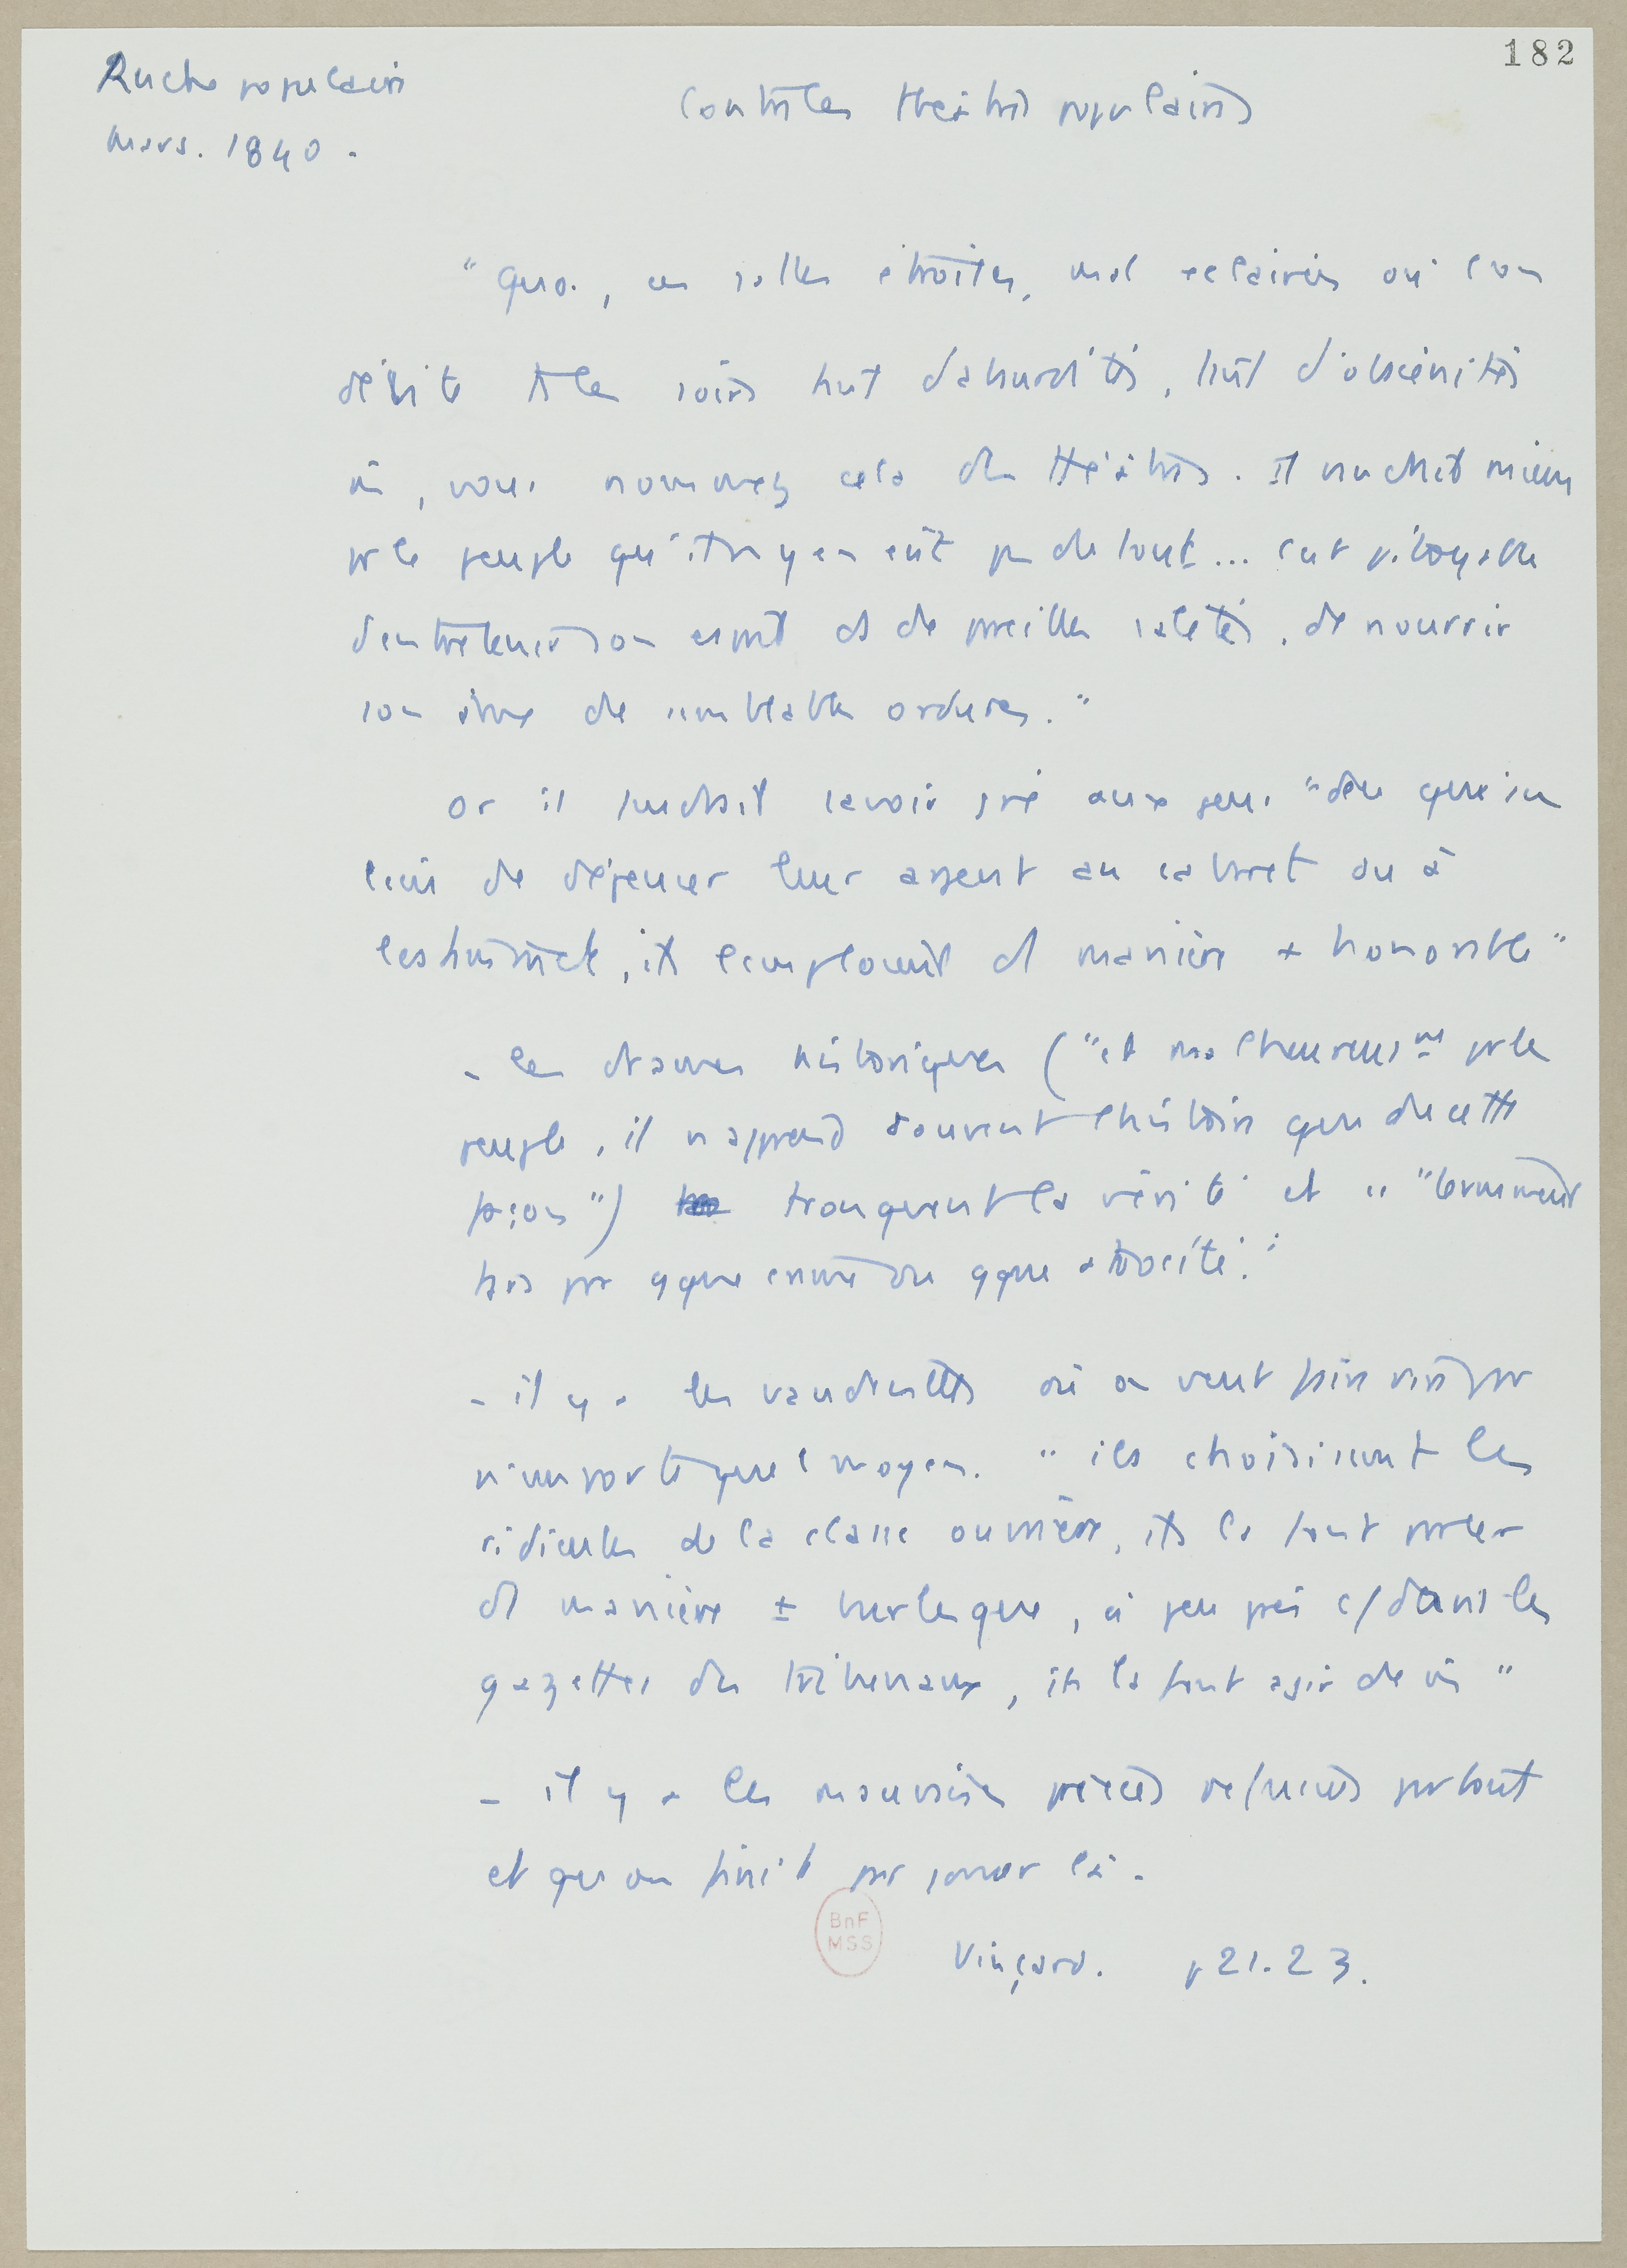 182
Ruche populaire
Mars. 1840.
Contre les théâtres populaires
"Quoi, ces salles étroites, mal éclairées où l'on
débite ts les soirs tant d'absurdités, tant d'obscénités
vous nommez cela des théâtres. Il vaudrait mieux
pr le peuple qu'il n'y en eût pas du tout... c'est pitoyable
d'entretenir son esprit de pareilles saletés, de nourrir
son âme de semblables ordures."
Or il faudrait savoir gré aux gens "de ce qu'au
lieu de dépenser leur argent au cabaret ou à
l'estaminet, ils l'emploient d manière + honorable"
- les drames historiques ("et malheureusmt pr le
peuple, il n'apprend souvent l'histoire que de cette
façon") tronquent la vérité et "terminent
par qque crime ou qque atrocité."
- il y a les vaudevilles où on veut faire rire par
n'importe quel moyen. "ils choisissent les
ridicules de la classe ouvrière, ils la font parler
d manière ± burlesque, à peu près c/ dans les
gazettes des tribunaux, ils la font agir de m̂"
- il y a les mauvaises pièces refusées partout
et qu'on finit par jouer là.
BnF
MSS
Vinçard. p 21-23.